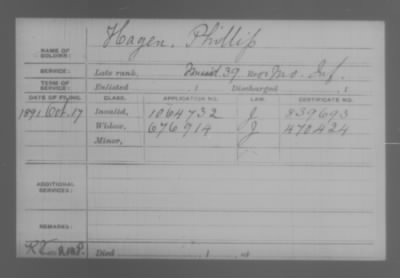 Hagen, Phillip
NAME OF SOLDIER:
SERVICE: Late rank, 39 Mo. Inf.
TERM OF SERVICE: Enlisted , 1 Discharged , 1
DATE OF FILING. CLASS. APPLICATION NO. LAW. CERTIFICATE NO.
1891 Oct. 17 Invalid, 1064732 J 839693
Widow, 676914 J 470424
Minor,
ADDITIONAL SERVICES:
REMARKS:
Died , 1 , at